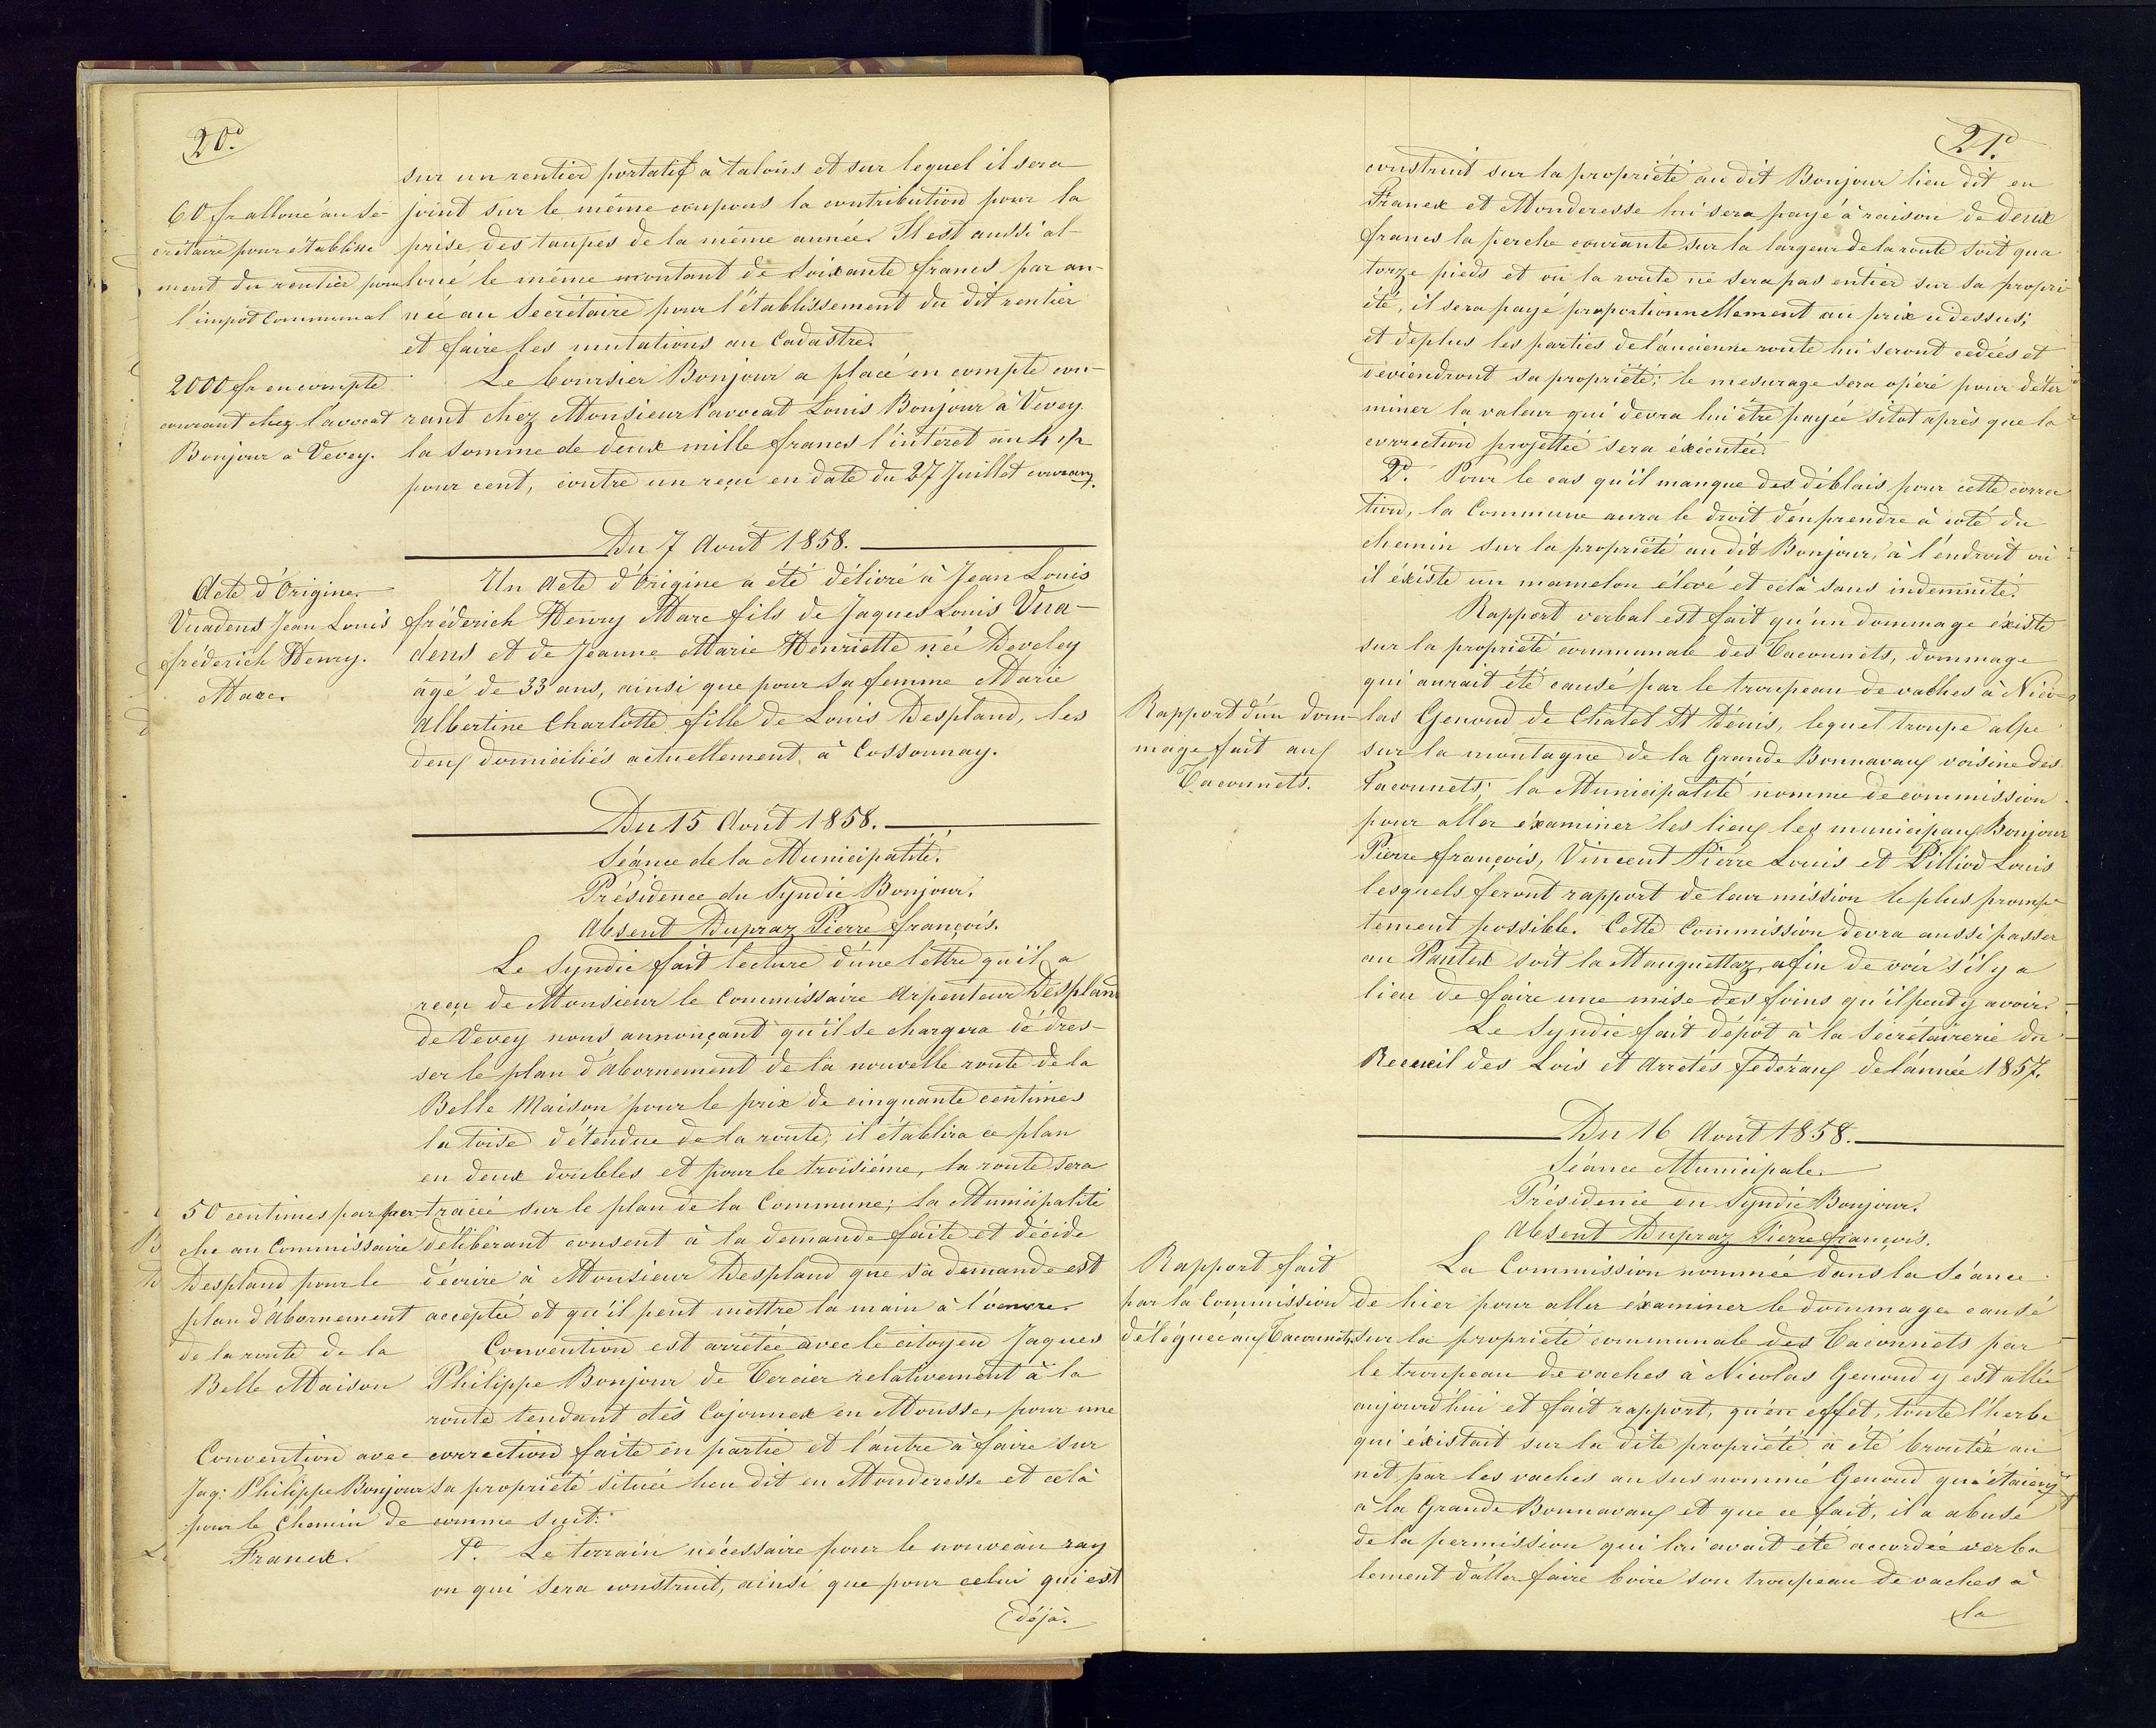 20.
sur un rentier portatif à talons et sur lequel il sera
60 fr alloué au Se-
crétaire pour établisse
ment du rentier pour
l'impot Communal
joint sur le même coupons la contribution pour la
prise des taupes de la même année. Il est aussi al-
loué le même montant de soixante francs par an-
née au Secrétaire pour l'établissement du dit rentier
et faire les mutations au Cadastre.
2000 fr en compte
courant chez l'avocat
Bonjour à Vevey.
Le boursier Bonjour a placé en compte cou-
rant chez Monsieur l'avocat Louis Bonjour à Vevey
la somme de deux mille francs l'intéret au 4 1/2
pour cent, contre un reçu en date du 27 Juillet courant.
Du 7 Aout 1858.
Acte d'Origine.
Vuadens Jean Louis
fréderich Henry.
Marc.
Un Acte d'Origine a été délivré à Jean Louis
fréderich Henry Marc fils de Jaques Louis Vua-
dens et de Jeanne Marie Henriette née Develey
âgé de 33 ans, ainsi que pour sa femme Marie
Albertine Charlotte fille de Louis Despland, les
deux domiciliés actuellement à Cossonnay.
Du 15 Aout 1858.
Séance de la Municipalité.
Présidence du Syndic Bonjour.
Absent Dupraz Pierre françois.
Le Syndic fait lecture d'une lettre qu'il a
reçu de Monsieur le Commissaire Arpenteur Despland
de Vevey nous annonçant qu'il se chargera de dres-
ser le plan d'Abornement de la nouvelle route de la
Belle Maison pour le prix de cinquante centimes
la toise d'étendue de la route; il établira ce plan
en deux doubles et pour le troisième, la route sera
50 centimes par per-
che au Commissaire
Despland pour le
plan d'Abornement
de la route de la
Belle Maison
tracée sur le plan de la Commune; la Municipalité
délibérant consent à la demande faite et décide
d'écrire à Monsieur Despland que sa demande est
acceptée et qu'il peut mettre la main à l'oeuvre.
Convention est arretée avec le citoyen Jaques
Philippe Bonjour de Tercier relativement à la
route tendant dès Cojonnex en Mousse, pour une
Convention avec
Jaq: Philippe Bonjour
pour le Chemin de
Franex.
correction faite en partie et l'autre à faire sur
sa propriété située lieu dit en Monderesse et celà
comme suit:
1o. Le terrain nécessaire pour le nouveau ray
on qui sera construit, ainsi que pour celui qui est
déjà.
21.
construit sur la propriété au dit Bonjour lieu dit en
Franex et Monderesse lui sera payé à raison de deux
francs la perche courante sur la largeur de la route soit qua
torze pieds et où la route ne sera pas entier sur sa propri
été, il sera payé proportionnellement au prix ci dessus;
et deplus les parties de l'ancienne route lui seront cedées et
deviendront sa propriété; le mesurage sera opéré pour déter
miner la valeur qui devra lui être payée sitot après que la
correction projettée sera éxécutée.
2o. Pour le cas qu'il manque des déblais pour cette correc
tion, la Commune aura le droit d'en prendre à coté du
chemin sur la propriété au dit Bonjour, à l'endroit où
il éxiste un mamelon élevé et celà sans indemnité.
Rapport verbal est fait qu'un dommage éxiste
sur la propriété communale des Taconnets, dommage
qui aurait été causé par le troupeau de vaches à Nico-
Rapport d'un dom-
mage fait aux
Taconnets.
las Genoud de Châtel St Dénis, lequel troupe alpe
sur la montagne de la Grande Bonnavaux voisine des
Taconnets; la Municipalité nomme de commission
pour aller éxaminer les lieux les municipaux Bonjour
Pierre françois, Vincent Pierre Louis et Pilliod Louis
lesquels feront rapport de leur mission le plus promp
tement possible. Cette Commission devra aussi passer
au Pautex soit la Mauguettaz, afin de voir s'il y a
lieu de faire une mise des foins qu'il peut y avoir.
Le Syndic fait dépôt à la Secrétairerie du
Recueil des Lois et Arretés Fedéraux de l'année 1857.
Du 16 Aout 1858.
Séance Municipale.
Présidence du Syndic Bonjour.
Absent Dupraz Pierre françois.
Rapport fait
par la Commission
déléguée aux Taconnets.
La Commission nommée dans la Séance
de hier pour aller éxaminer le dommage causé
sur la propriété communale des Taconnets par
le troupeau de vaches à Nicolas Genoud y est allée
aujourd'hui et fait rapport, qu'en effet, toute l'herbe
qui éxistait sur la dite propriété à été broutée au
net par les vaches au sus nommé Genoud qui étaient
à la Grande Bonnavaux et que ce fait, il a abusé
de la permission qui lui avait été accordée verba
lement d'aller faire boire son troupeau de vaches à
la